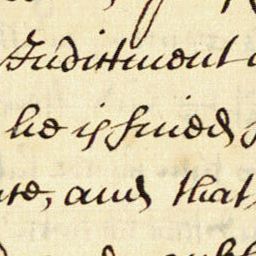 Indittment
he is fined
and that